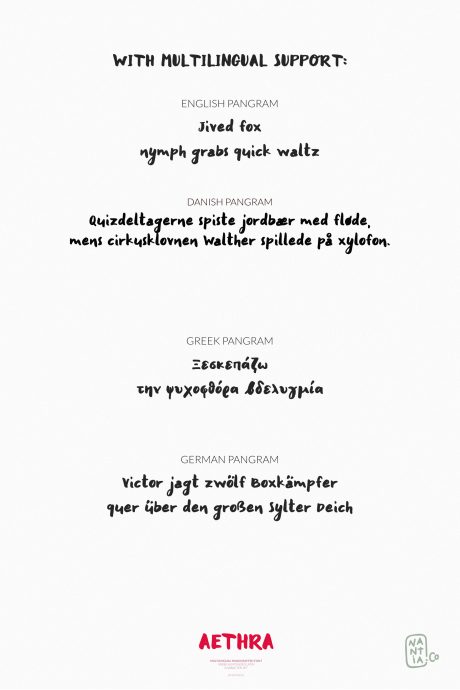 WITH MULTILINGUAL SUPPORT:
ENGLISH PANGRAM
Jived fox
nymph grabs quick waltz
DANISH PANGRAM
Quizdeltagerne spiste jordbær med fløde,
mens cirkusklovnen Walther spillede på xylofon.
GREEK PANGRAM
Ξεσκεπάζω
την ψυχοφθόρα βδελυγμία
GERMAN PANGRAM
Victor jagt zwölf Boxkämpfer
quer über den großen Sylter Deich
AETHRA
NA
NT
IA.Co